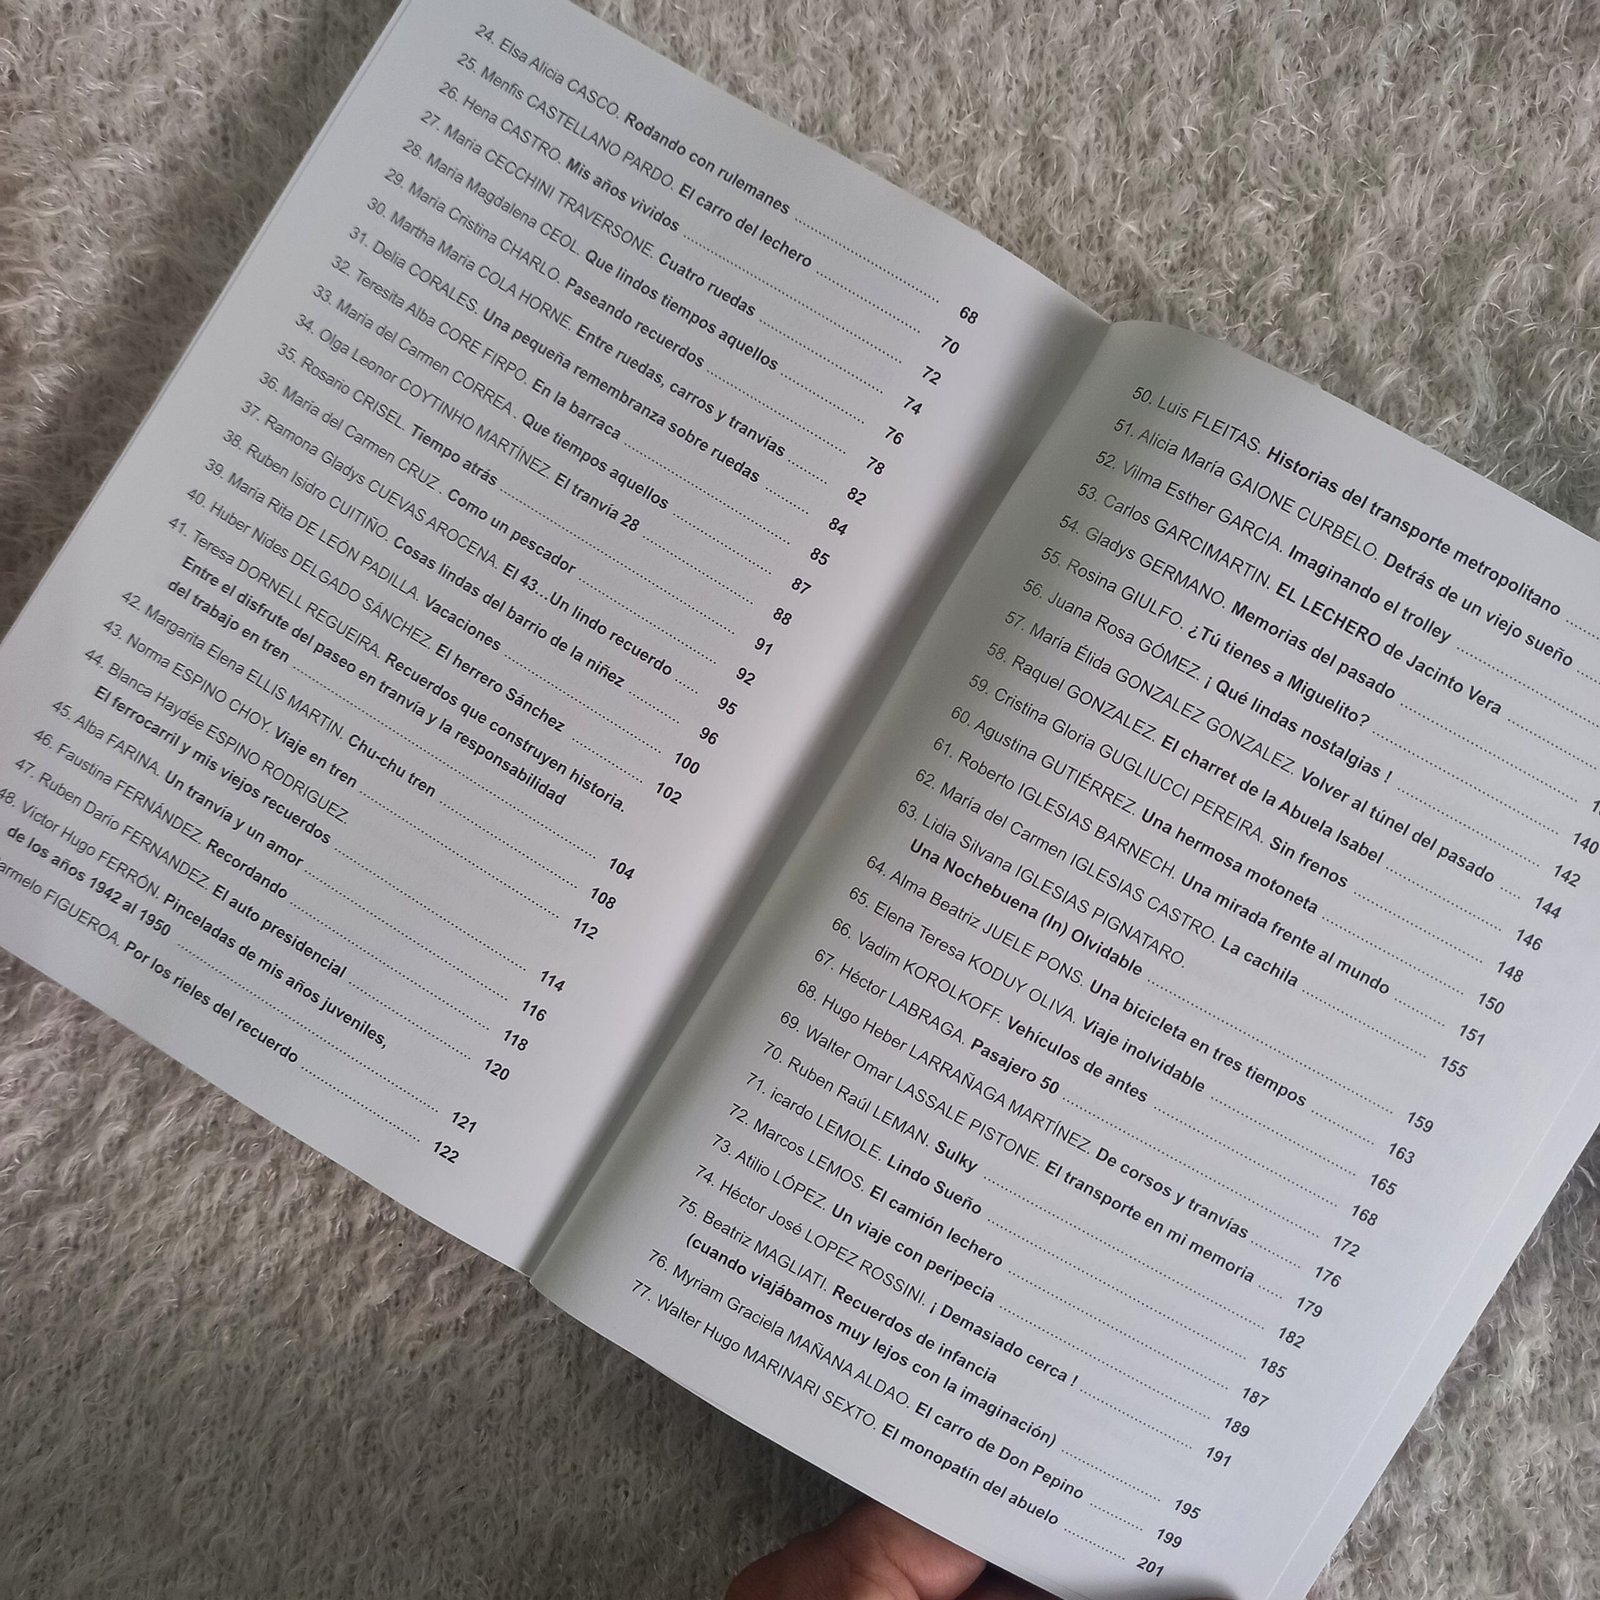 24. Elsa Alicia CASCO. Rodando con rulemanes ........ 68
25. Menfis CASTELLANO PARDO. El carro del lechero ........ 70
26. Hena CASTRO. Mis años vividos ........ 72
27. María CECCHINI TRAVERSONE. Cuatro ruedas ........ 74
28. María Magdalena CEOL. Que lindos tiempos aquellos ........ 76
29. María Cristina CHARLO. Paseando recuerdos ........ 78
30. Martha María COLA HORNE. Entre ruedas, carros y tranvías ........ 82
31. Delia CORALES. Una pequeña remembranza sobre ruedas ........ 84
32. Teresita Alba CORE FIRPO. En la barraca ........ 85
33. María del Carmen CORREA . Que tiempos aquellos ........ 87
34. Olga Leonor COYTINHO MARTÍNEZ. El tranvía 28 ........ 88
35. Rosario CRISEL. Tiempo atrás ........ 91
36. María del Carmen CRUZ . Como un pescador ........ 92
37. Ramona Gladys CUEVAS AROCENA. El 43...Un lindo recuerdo ..... 95
38. Ruben Isidro CUITIÑO. Cosas lindas del barrio de la niñez ........ 96
39. María Rita DE LEÓN PADILLA. Vacaciones ........ 100
40. Huber Nides DELGADO SÁNCHEZ. El herrero Sánchez ........ 102
41. Teresa DORNELL REGUEIRA. Recuerdos que construyen historia.
Entre el disfrute del paseo en tranvía y la responsabilidad
del trabajo en tren ........ 104
42. Margarita Elena ELLIS MARTIN. Chu-chu tren ........ 108
43. Norma ESPINO CHOY. Viaje en tren ........ 112
44. Blanca Haydée ESPINO RODRIGUEZ.
El ferrocarril y mis viejos recuerdos ........ 114
45. Alba FARINA. Un tranvía y un amor ........ 116
46. Faustina FERNÁNDEZ. Recordando ........ 118
47. Ruben Darío FERNANDEZ. El auto presidencial ........ 120
48. Víctor Hugo FERRÓN. Pinceladas de mis años juveniles,
de los años 1942 al 1950 ........ 121
armelo FIGUEROA. Por los rieles del recuerdo ........ 122
50. Luis FLEITAS. Historias del transporte metropolitano ........
51. Alicia María GAIONE CURBELO. Detrás de un viejo sueño ........
52. Vilma Esther GARCIA. Imaginando el trolley ........
53. Carlos GARCIMARTIN. EL LECHERO de Jacinto Vera ........
54. Gladys GERMANO. Memorias del pasado ........
55. Rosina GIULFO. ¿Tú tienes a Miguelito? ........ 140
56. Juana Rosa GÓMEZ. ¡ Qué lindas nostalgias ! ........ 142
57. María Élida GONZALEZ GONZALEZ. Volver al túnel del pasado ..... 144
58. Raquel GONZALEZ. El charret de la Abuela Isabel ........ 146
59. Cristina Gloria GUGLIUCCI PEREIRA. Sin frenos ........ 148
60. Agustina GUTIÉRREZ. Una hermosa motoneta ........ 150
61. Roberto IGLESIAS BARNECH. Una mirada frente al mundo ........ 151
62. María del Carmen IGLESIAS CASTRO. La cachila ........ 155
63. Lidia Silvana IGLESIAS PIGNATARO.
Una Nochebuena (In) Olvidable ........ 159
64. Alma Beatriz JUELE PONS. Una bicicleta en tres tiempos ........ 163
65. Elena Teresa KODUY OLIVA. Viaje inolvidable ........ 165
66. Vadim KOROLKOFF. Vehículos de antes ........ 168
67. Héctor LABRAGA. Pasajero 50 ........ 172
68. Hugo Heber LARRAÑAGA MARTÍNEZ. De corsos y tranvías ........ 176
69. Walter Omar LASSALE PISTONE. El transporte en mi memoria ........ 179
70. Ruben Raúl LEMAN. Sulky ........ 182
71. icardo LEMOLE. Lindo Sueño ........ 185
72. Marcos LEMOS. El camión lechero ........ 187
73. Atilio LÓPEZ. Un viaje con peripecia ........ 189
74. Héctor José LOPEZ ROSSINI. ¡ Demasiado cerca ! ........ 191
75. Beatriz MAGLIATI. Recuerdos de infancia
(cuando viajábamos muy lejos con la imaginación) ........ 195
76. Myriam Graciela MAÑANA ALDAO. El carro de Don Pepino ........ 199
77. Walter Hugo MARINARI SEXTO. El monopatín del abuelo ........ 201